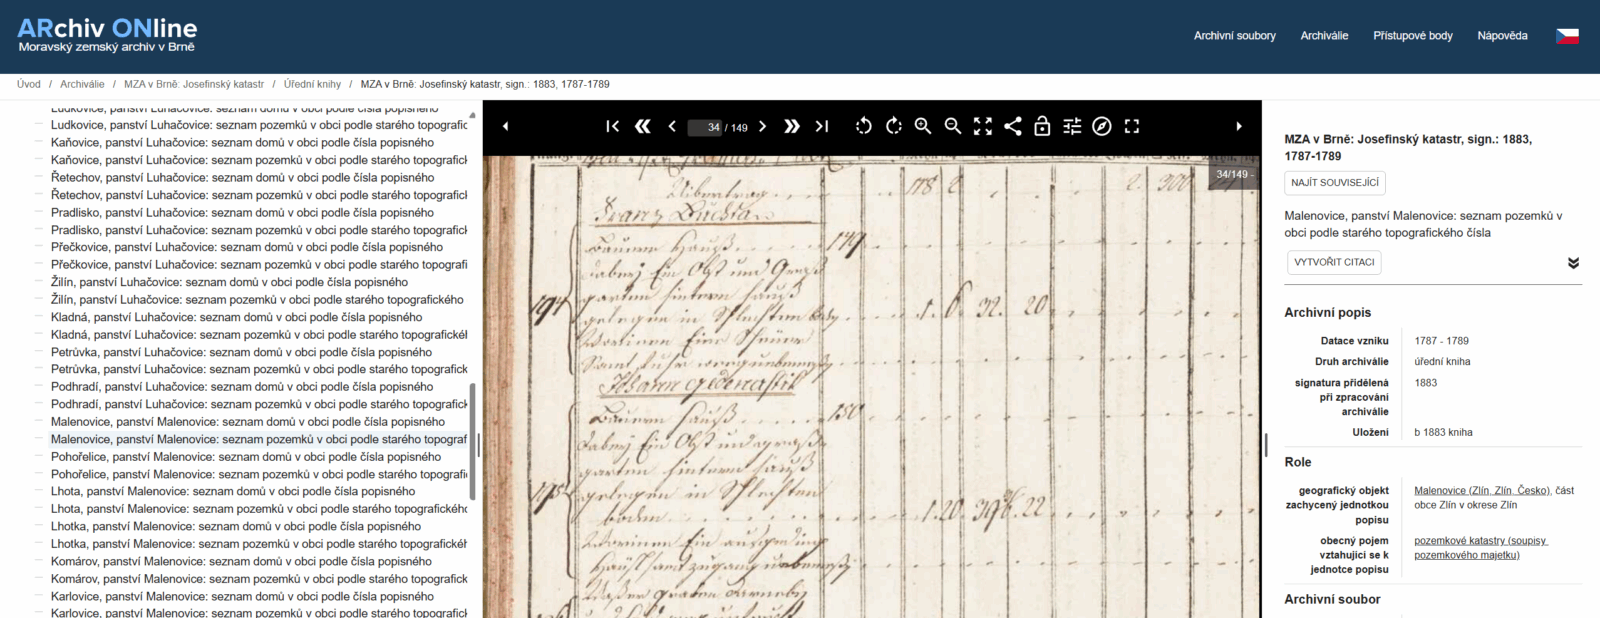 ARchiv ONline
Moravský zemský archiv v Brně
Archivní soubory
Archiválie
Přístupové body
Nápověda
Úvod / Archiválie / MZA v Brně: Josefinský katastr / Úřední knihy / MZA v Brně: Josefinský katastr, sign.: 1883, 1787-1789
Ludkovice, panství Luhačovice: seznam domů v obci podle čísla popisného
Ludkovice, panství Luhačovice: seznam pozemků v obci podle starého topografic
Kaňovice, panství Luhačovice: seznam domů v obci podle čísla popisného
Kaňovice, panství Luhačovice: seznam pozemků v obci podle starého topografick
Řetechov, panství Luhačovice: seznam domů v obci podle čísla popisného
Řetechov, panství Luhačovice: seznam pozemků v obci podle starého topografick
Pradlisko, panství Luhačovice: seznam domů v obci podle čísla popisného
Pradlisko, panství Luhačovice: seznam pozemků v obci podle starého topografick
Přečkovice, panství Luhačovice: seznam domů v obci podle čísla popisného
Přečkovice, panství Luhačovice: seznam pozemků v obci podle starého topografi
Žilín, panství Luhačovice: seznam domů v obci podle čísla popisného
Žilín, panství Luhačovice: seznam pozemků v obci podle starého topografického
Kladná, panství Luhačovice: seznam domů v obci podle čísla popisného
Kladná, panství Luhačovice: seznam pozemků v obci podle starého topografickél
Petrůvka, panství Luhačovice: seznam domů v obci podle čísla popisného
Petrůvka, panství Luhačovice: seznam pozemků v obci podle starého topografick
Podhradí, panství Luhačovice: seznam domů v obci podle čísla popisného
Podhradí, panství Luhačovice: seznam pozemků v obci podle starého topografick
Malenovice, panství Malenovice: seznam domů v obci podle čísla popisného
Malenovice, panství Malenovice: seznam pozemků v obci podle starého topograf
Pohořelice, panství Malenovice: seznam domů v obci podle čísla popisného
Pohořelice, panství Malenovice: seznam pozemků v obci podle starého topografi
Lhota, panství Malenovice: seznam domů v obci podle čísla popisného
Lhota, panství Malenovice: seznam pozemků v obci podle starého topografickéhc
Lhotka, panství Malenovice: seznam domů v obci podle čísla popisného
Lhotka, panství Malenovice: seznam pozemků v obci podle starého topografickéł
Komárov, panství Malenovice: seznam domů v obci podle čísla popisného
Komárov, panství Malenovice: seznam pozemků v obci podle starého topografick
Karlovice, panství Malenovice: seznam domů v obci podle čísla popisného
Karlovice, panství Malenovice: seznam pozemků v obci podle starého topografick
34 / 149
34/149 -
178 2 2. 300
Franz
Bauern Hauß 149
dabey Ein Obst und Graß
garten hintern Hauß
194 gelegen in Schlechten 1. 6. 32. 20
Johann
Bauern Hauß 150
dabey Ein Obst und graß
garten hintern Hauß
195 gelegen in Schlechten
boden 1. 20. 22
MZA v Brně: Josefinský katastr, sign.: 1883,
1787-1789
NAJÍT SOUVISEJÍCÍ
Malenovice, panství Malenovice: seznam pozemků v
obci podle starého topografického čísla
VYTVOŘIT CITACI
Archivní popis
Datace vzniku 1787 - 1789
Druh archiválie úřední kniha
signatura přidělená při zpracování archiválie 1883
Uložení b 1883 kniha
Role
geografický objekt zachycený jednotkou popisu Malenovice (Zlín, Zlín, Česko), část obce Zlín v okrese Zlín
obecný pojem vztahující se k jednotce popisu pozemkové katastry (soupisy pozemkového majetku)
Archivní soubor